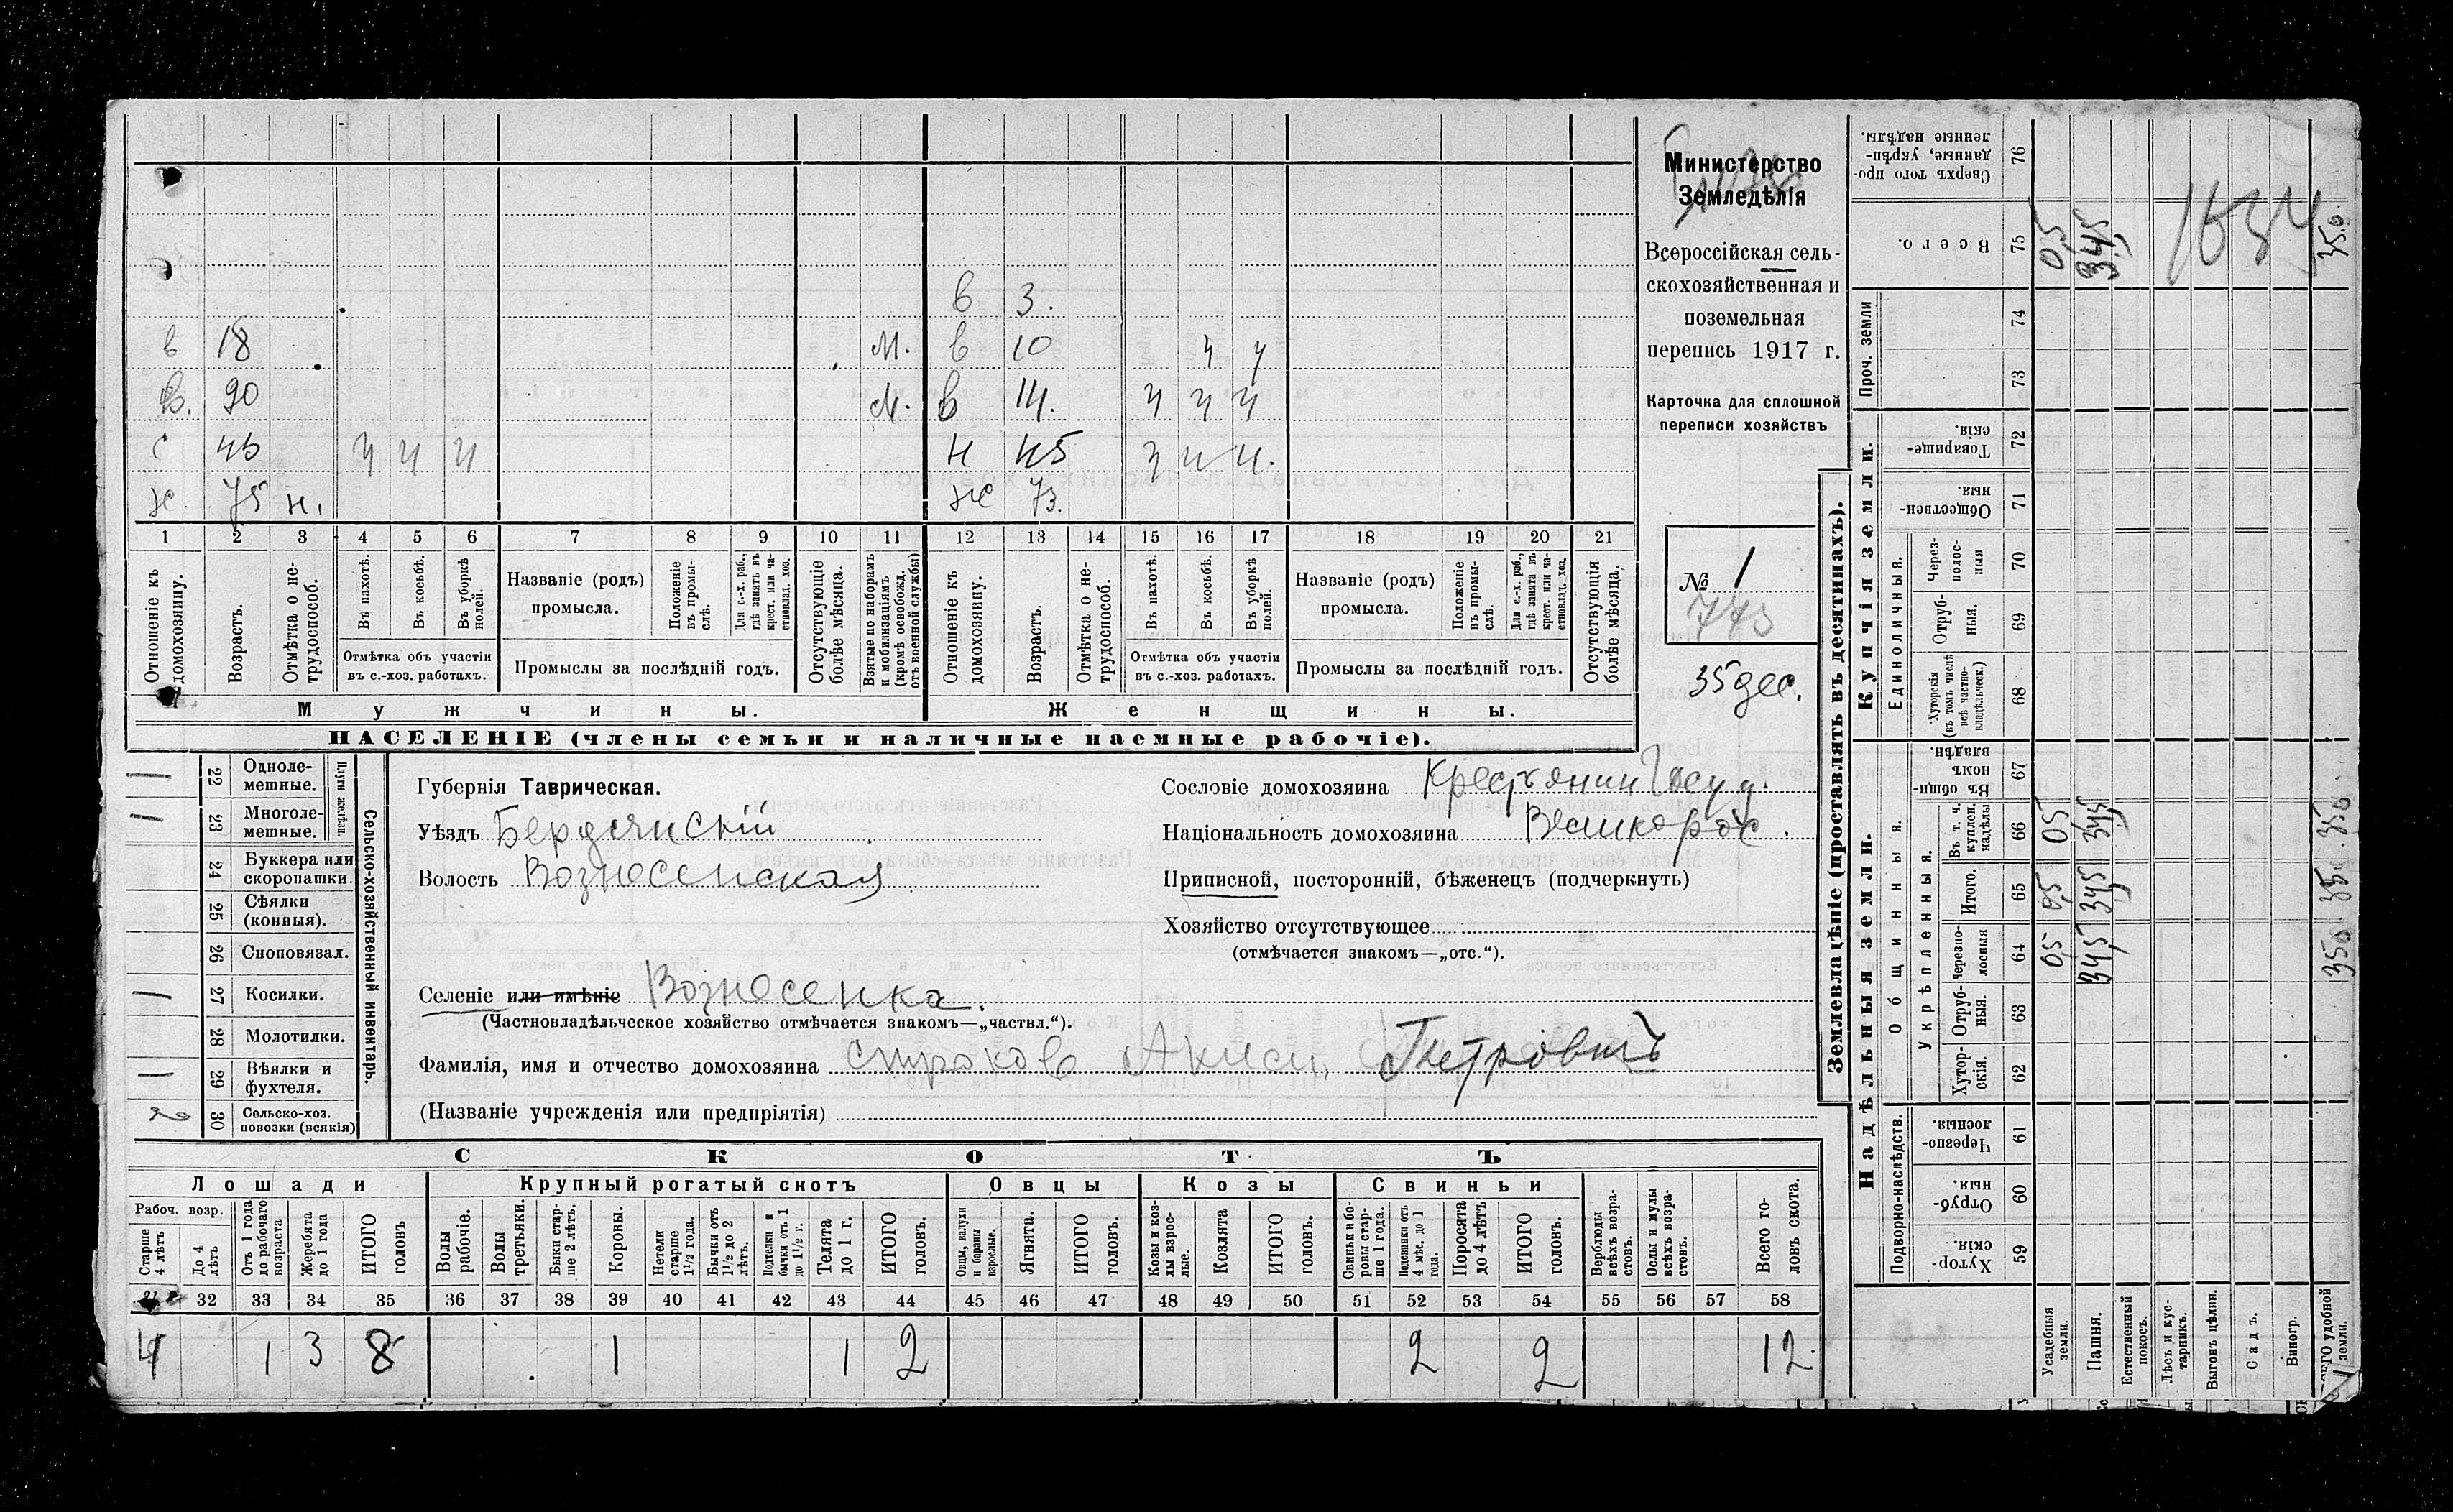 Министерство
Земледѣлія
Всероссійская сель-
скохозяйственная и
поземельная
перепись 1917 г.
Карточка для сплошной
переписи хозяйствъ
№ 1
773
35 дес.
в 3.
в 18 М. в 10 ч ч
в. 20 М. в 14. ч ч ч
с 43 ч ч ч н 45 ч ч ч.
ж. 75 н. ж 73.
1 2 3 4 5 6 7 8 9 10 11 12 13 14 15 16 17 18 19 20 21
Отношеніе къ домохозяину.
Возрастъ.
Отмѣтка о не-
трудоспособ.
Въ пахотѣ.
Въ косьбѣ.
Въ уборкѣ
полей.
Отмѣтка объ участіи
въ с.-хоз. работахъ.
Названіе (родъ)
промысла.
Положеніе
въ промы-
слѣ.
Для с.-х. раб.,
гдѣ занятъ въ
крест. или ча-
стновлад. хоз.
Промыслы за послѣдній годъ.
Отсутствующіе
болѣе мѣсяца.
Взятые по наборамъ
и мобилизаціямъ
(кромѣ освобожд.
отъ военной службы)
Отношеніе къ
домохозяину.
Возрастъ.
Отмѣтка о не-
трудоспособ.
Въ пахотѣ.
Въ косьбѣ.
Въ уборкѣ
полей.
Отмѣтка объ участіи
въ с.-хоз. работахъ.
Названіе (родъ)
промысла.
Положеніе
въ промы-
слѣ.
Для с.-х. раб.,
гдѣ занята въ
крест. или ча-
стновлад. хоз.
Промыслы за послѣдній годъ.
Отсутствующія
болѣе мѣсяца.
Мужчины. Женщины.
НАСЕЛЕНІЕ (члены семьи и наличные наемные рабочіе).
Сельско-хозяйственный инвентарь.
Плуги желѣзн.
1 22 Одноле-
мешные.
1 23 Многоле-
мешные.
24 Буккера или
скоропашки.
25 Сѣялки
(конныя).
26 Сноповязал.
1 27 Косилки.
28 Молотилки.
1 29 Вѣялки и
фухтеля.
2 30 Сельско-хоз.
повозки (всякія)
Губернія Таврическая.
Уѣздъ Бердянскій
Волость Вознесенская
Сословіе домохозяина Крестьянин Госуд.
Національность домохозяина Великорос.
Приписной, посторонній, бѣженецъ (подчеркнуть)
Хозяйство отсутствующее
(отмѣчается знакомъ—„отс.“).
Селеніе или имѣніе Вознесенка.
(Частновладѣльческое хозяйство отмѣчается знакомъ—„частвл.“).
Фамилія, имя и отчество домохозяина Строков Петрович
(Названіе учрежденія или предпріятія)
СКОТЪ
Лошади Крупный рогатый скотъ Овцы Козы Свиньи
Рабоч. возр.
Старше
4 лѣтъ
До 4
лѣтъ
Отъ 1 года
до рабочаго
возраста
Жеребята
до 1 года
ИТОГО
головъ
Волы
рабочіе.
Волы
третьяки.
Быки стар-
ше 2 лѣтъ.
Коровы.
Нетели
старше
1½ года.
Бычки отъ
1½ до 2
лѣтъ.
Подтелки и
бычки отъ 1
до 1½ г.
Телята
до 1 г.
ИТОГО
головъ.
Овцы, валухи
и бараны
взрослые.
Ягнята.
ИТОГО
головъ.
Козы и коз-
лы взрос-
лые.
Козлята
ИТОГО
головъ.
Свиньи и бо-
ровы стар-
ше 1 года.
Подсвинки отъ
4 мѣс. до 1
года.
Поросята
до 4 лѣтъ
ИТОГО
головъ.
Верблюды
всѣхъ возра-
стовъ.
Ослы и мулы
всѣхъ возра-
стовъ.
Всего го-
ловъ скота.
32 33 34 35 36 37 38 39 40 41 42 43 44 45 46 47 48 49 50 51 52 53 54 55 56 57 58
4 1 3 8 1 1 2 2 2 12
Землевладѣніе (проставлять въ десятинахъ).
Купчія земли.
Надѣльныя земли.
Сверхъ того про-
данные, укрѣп-
ленные надѣлы. 76
Всего. 75 05 345 35.0
1634
Проч. земли
74
73
Товарище-
скія. 72
Обществен-
ныя. 71
Единоличныя.
Через-
полос-
ныя 70
Отруб-
ныя. 69
Хуторскія
(въ томъ числѣ
всѣ частно-
владѣльческ.) 68
Общинныя.
Въ общин-
номъ
владѣн. 67
Укрѣпленныя.
Въ т. ч.
куплен.
надѣлы 66 05 345 350
Итого. 65 05 345 350
Черезпо-
лосныя 64 05 345 350
Отруб-
ныя. 63
Хутор-
скія. 62
Подворно-наслѣдств.
Черезпо-
лосныя. 61
Отруб-
ныя. 60
Хутор-
скія. 59
Усадебныя
земли.
Пашня.
Естественный
покосъ.
Лѣсъ и кус-
тарникъ.
Выгонъ цѣлин.
Садъ.
Виногр.
удобной
земли.